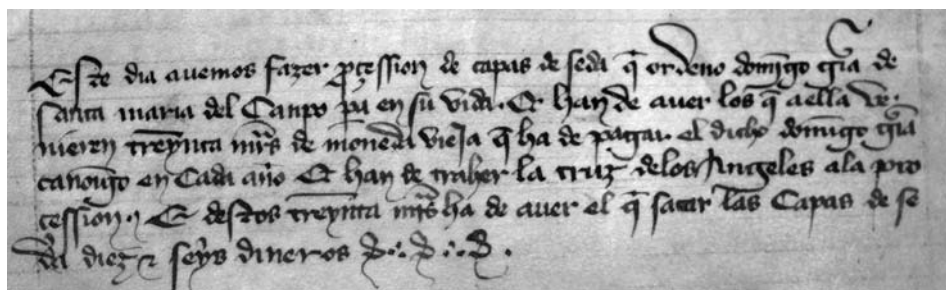 Este dia auemos fazer proçession de capas de seda q̃ ordeno domĩgo gr̃a de
santa maria del Canpo pa en su vida. Et han de auer los q̃ a ella ve
nieren treynta mr̃s de moneda vieja q̃ ha de pagar el dicho domĩgo gr̃a
canonigo en Cada año Et han de traher la cruz delos Angeles ala pro
cession. Et destos treynta mr̃s ha de auer el q̃ sacar las Capas de se
da diez z seys dineros